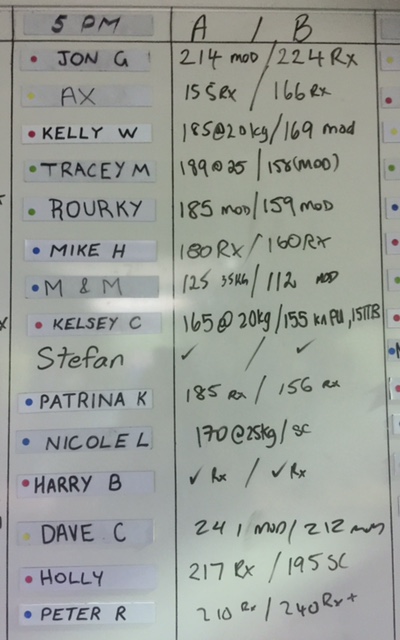 5 PM A / B
JON G 214 MOD / 224 Rx
AX 155 Rx / 166 Rx
KELLY W 185@20kg/169 mod
TRACEY M 189@25 / 158(MOD)
ROURKY 185 MOD/159 MOD
MIKE H 180 RX / 160 RX
M & M 125 35KG / 112 MOD
KELSEY C 165@20kg/155 kn PU, 15TTB
Stefan ✓ / ✓
PATRINA K 185 Rx / 156 Rx
NICOLE L 170@25kg/ SC
HARRY B ✓ Rx / ✓ Rx
DAVE C 241 MOD/ 212 mod
HOLLY 217 Rx / 195 SC
PETER R 210 Rx / 240 Rx+